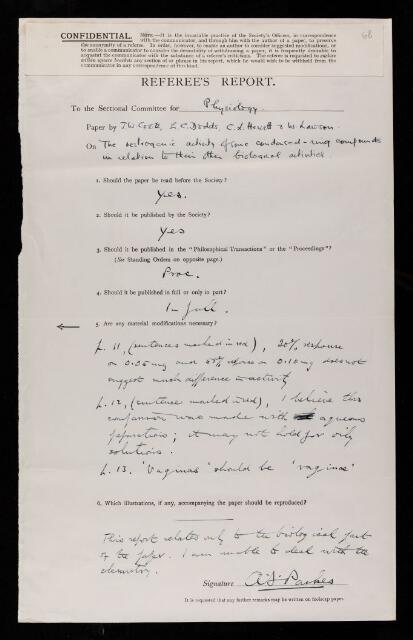 68
CONFIDENTIAL.
NOTE.—It is the invariable practice of the Society's Officers, in correspondence
with the communicator, and through him with the author of a paper, to preserve
the anonymity of a referee. In order, however, to enable an author to consider suggested modifications, or
to enable a communicator to consider the desirability of withdrawing a paper, it is frequently desirable to
acquaint the communicator with the substance of a referee's criticisms. The referee is requested to explain
within square brackets any section of or phrase in his report, which he would wish to be withheld from the
communicator in any correspondence of this kind.
REFEREE'S REPORT.
To the Sectional Committee for Physiology.
Paper by J.W. Cook, E.C. Dodds, C.L. Hewett & W. Lawson.
On The oestrogenic activity of some condensed-ring compounds
in relation to their other biological activities.
1. Should the paper be read before the Society?
Yes.
2. Should it be published by the Society?
Yes
3. Should it be published in the "Philosophical Transactions" or the "Proceedings"?
(See Standing Orders on opposite page.)
Proc.
4. Should it be published in full or only in part?
In full.
5. Are any material modifications necessary?
p. 11, (sentences marked in red), 20% response
on 0.05 mg and % response on 0.10 mg does not
suggest much difference in activity
p. 12, (sentence marked in red), I believe this
comparison was made with aqueous
preparations; it may not hold for oily
solutions.
p. 13. 'Vaginas' should be 'vaginae'
6. Which illustrations, if any, accompanying the paper should be reproduced?
This report relates only to the biological part
of the paper. I am unable to deal with the
chemistry.
Signature A.S. Parkes
It is requested that any further remarks may be written on foolscap paper.